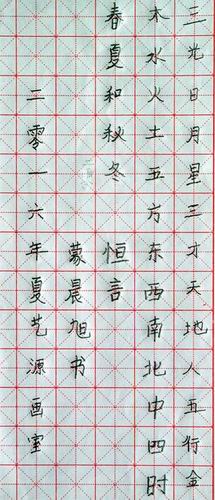 三光日月星三才天地人五行金
木水火土五方东西南北中四时
春夏和秋冬 恒言
蒙晨旭书
二零一六年夏艺源画室